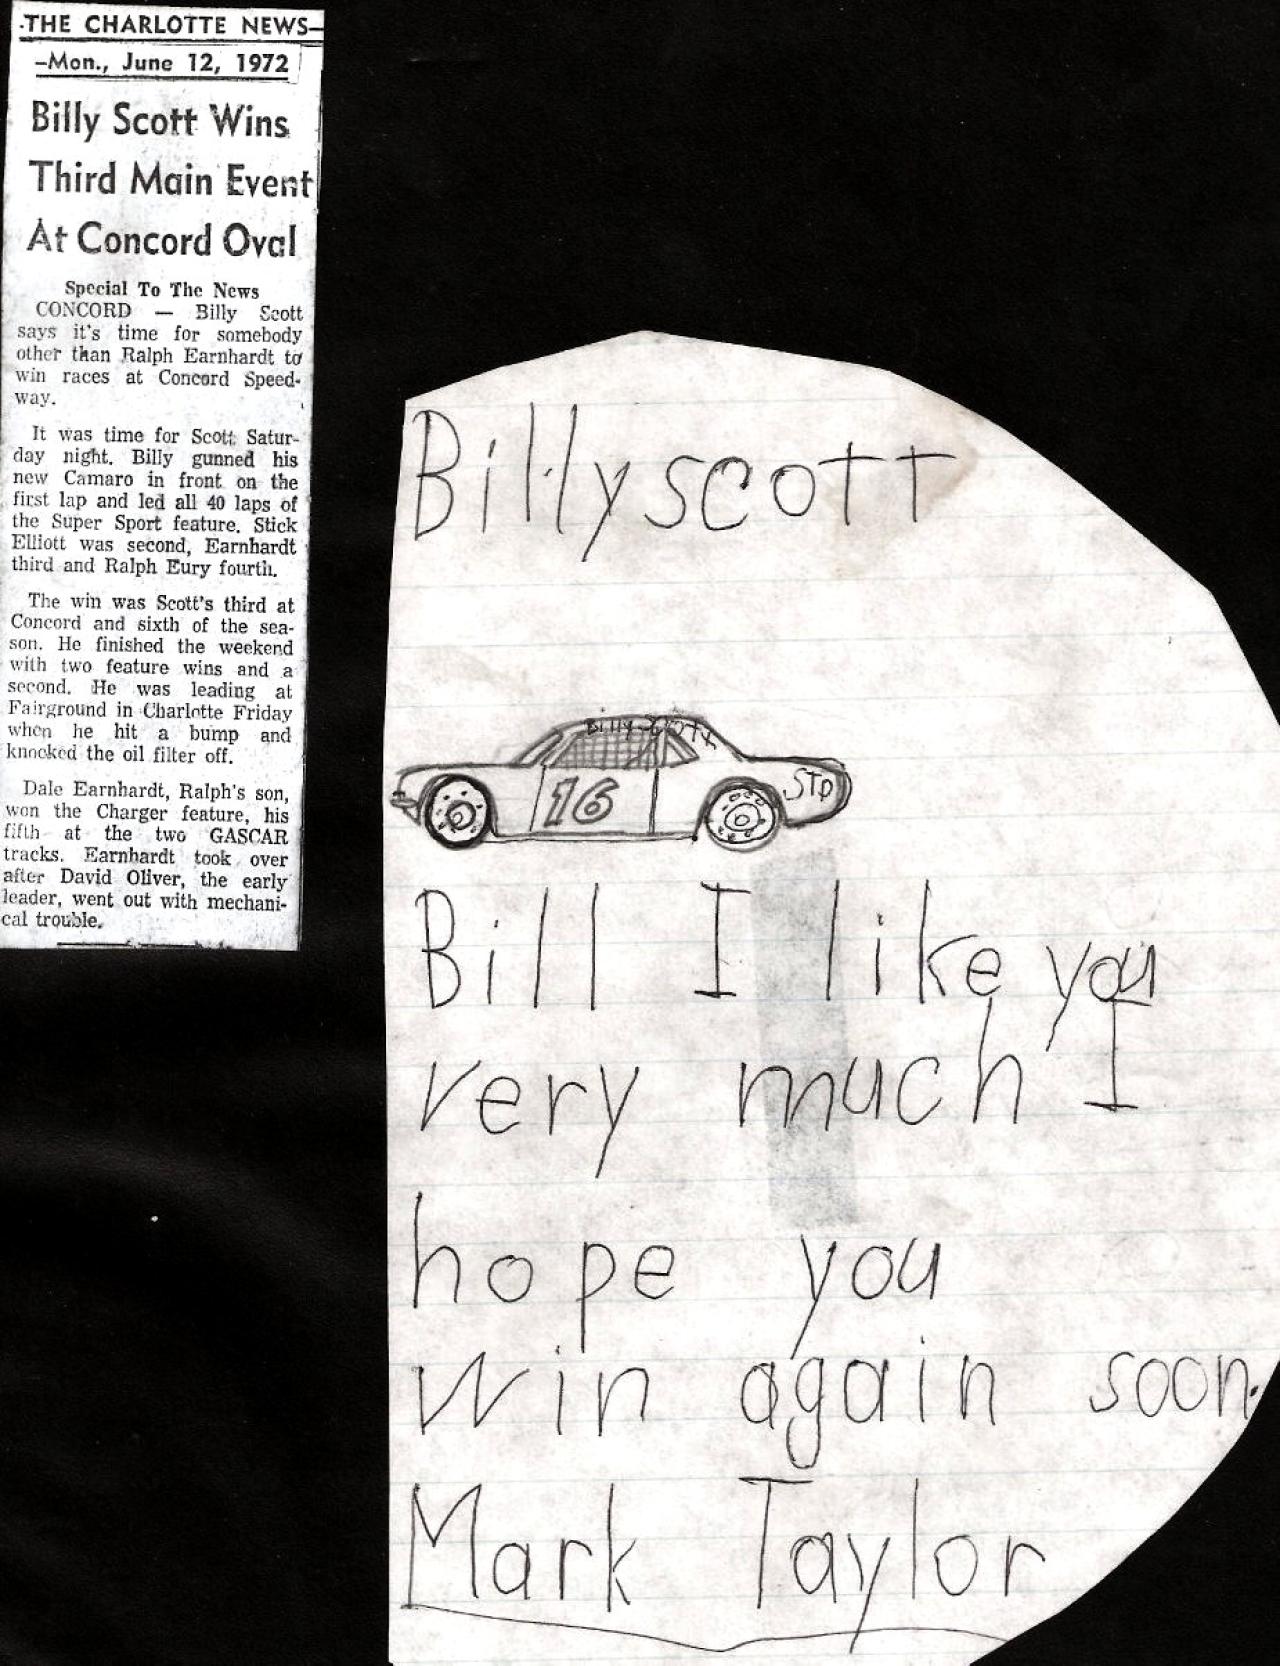 THE CHARLOTTE NEWS
Mon., June 12, 1972
Billy Scott Wins
Third Main Event
At Concord Oval
Special To The News
CONCORD — Billy Scott
says it's time for somebody
other than Ralph Earnhardt to
win races at Concord Speed-
way.
It was time for Scott Satur-
day night. Billy gunned his
new Camaro in front on the
first lap and led all 40 laps of
the Super Sport feature. Stick
Elliott was second, Earnhardt
third and Ralph Eury fourth.
The win was Scott's third at
Concord and sixth of the sea-
son. He finished the weekend
with two feature wins and a
second. He was leading at
Fairground in Charlotte Friday
when he hit a bump and
knocked the oil filter off.
Dale Earnhardt, Ralph's son,
won the Charger feature, his
fifth at the two GASCAR
tracks. Earnhardt took over
after David Oliver, the early
leader, went out with mechani-
cal trouble.
Billy scott
Billy Scott
16
STP
Bill I like you
very much I
hope you
win again soon.
Mark Taylor